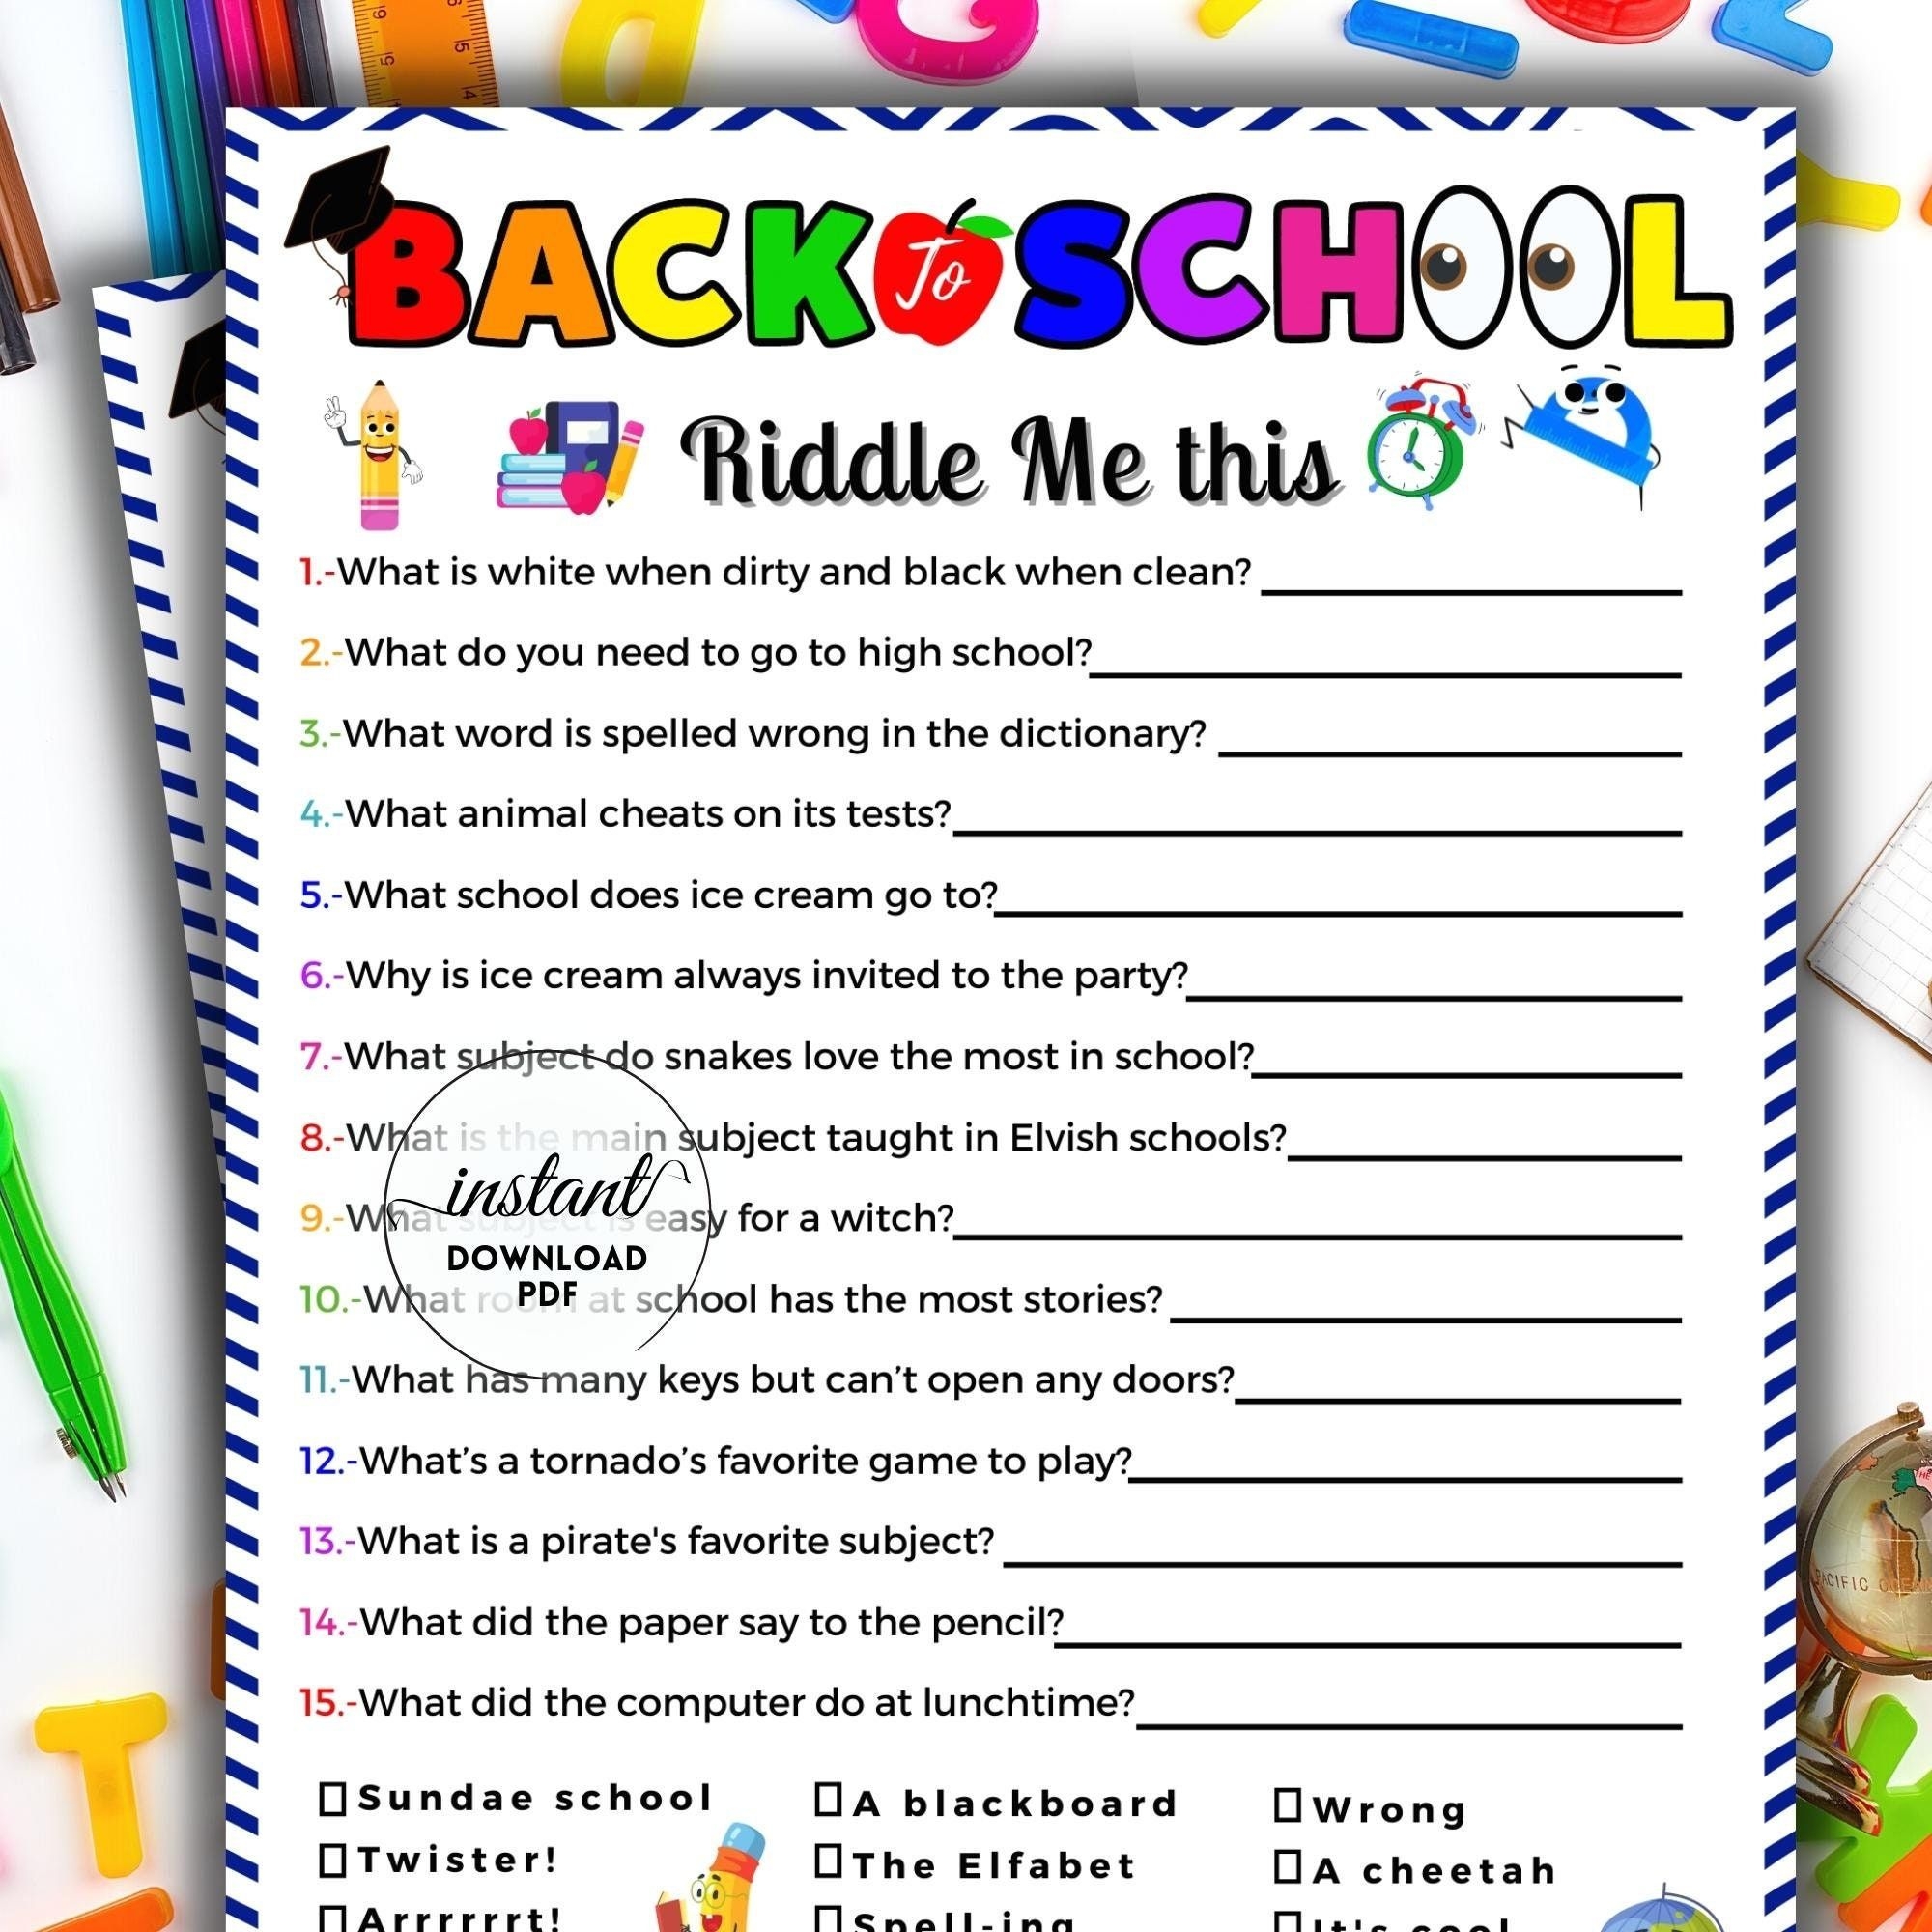 BACK To SCHOOL
Riddle Me this
1.-What is white when dirty and black when clean?
2.-What do you need to go to high school?
3.-What word is spelled wrong in the dictionary?
4.-What animal cheats on its tests?
5.-What school does ice cream go to?
6.-Why is ice cream always invited to the party?
7.-What subject do snakes love the most in school?
8.-What is the main subject taught in Elvish schools?
9.-What subject is easy for a witch?
10.-What room at school has the most stories?
11.-What has many keys but can’t open any doors?
12.-What’s a tornado’s favorite game to play?
13.-What is a pirate's favorite subject?
14.-What did the paper say to the pencil?
15.-What did the computer do at lunchtime?
instant
DOWNLOAD
PDF
Sundae school A blackboard Wrong
Twister! The Elfabet A cheetah
Arrrrrrt! Spell-ing It's cool
PACIFIC